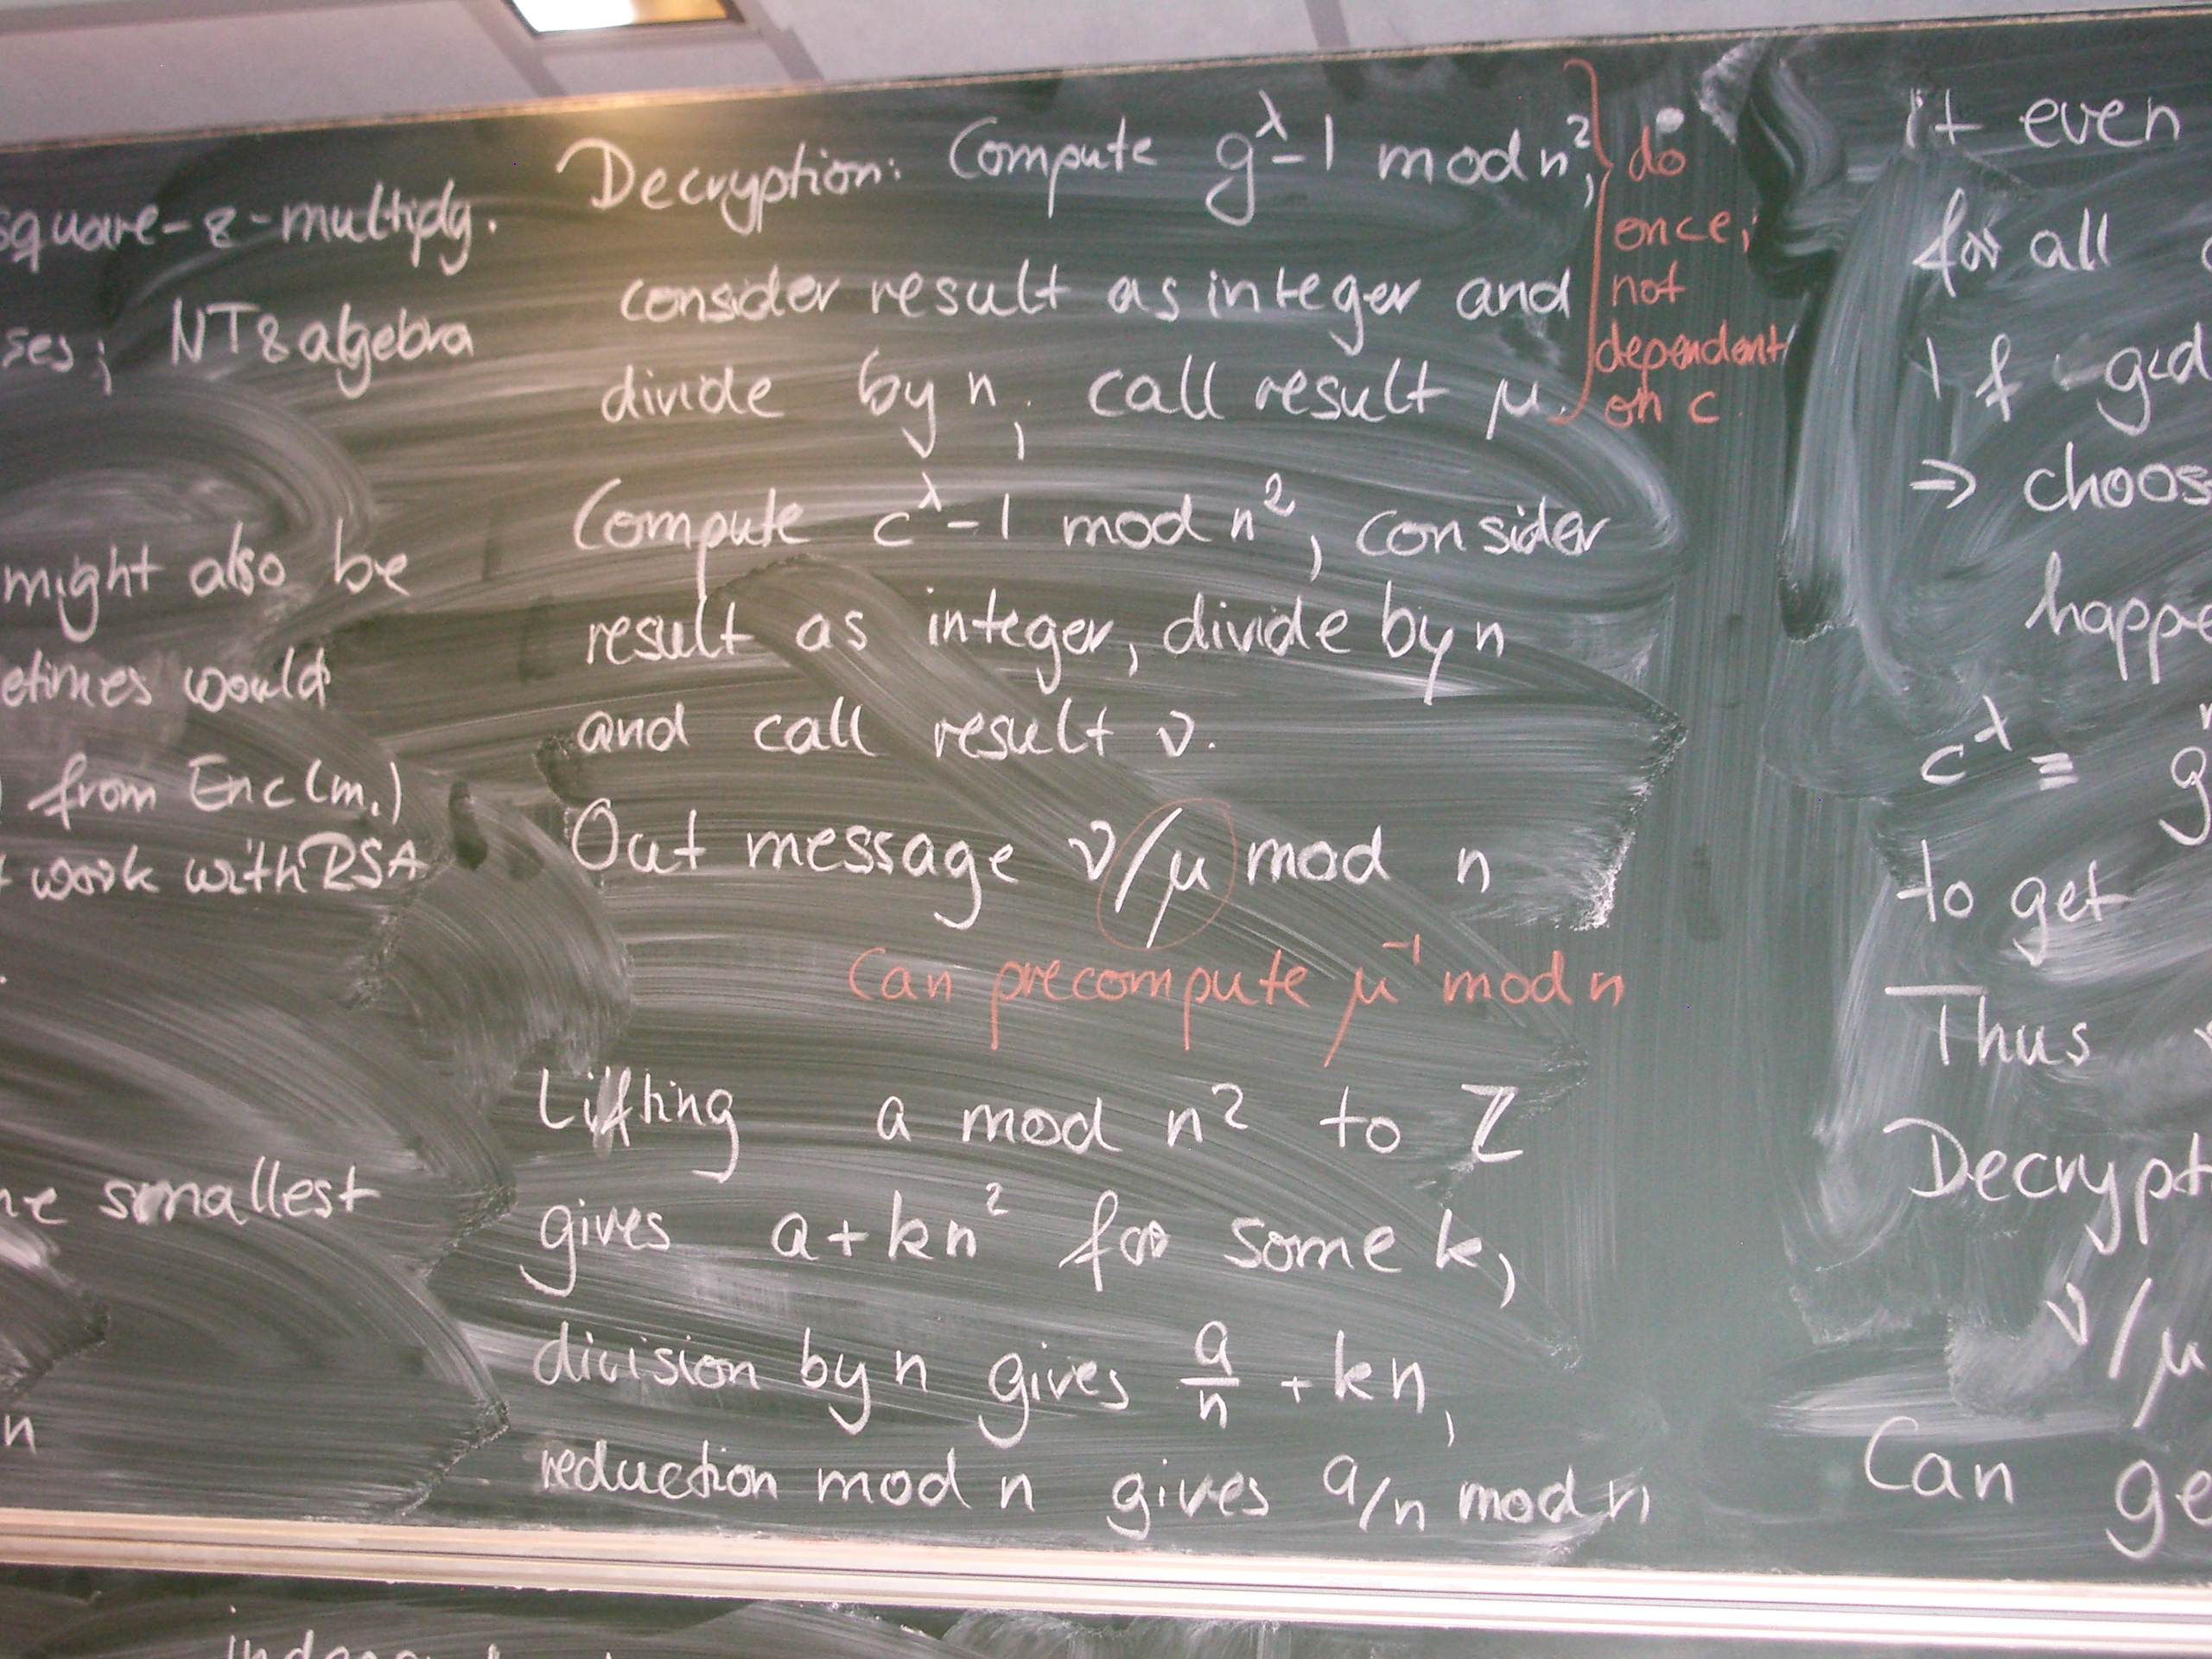 square-&-multiply.
ses; NT&algebra
might also be
etimes would
from Enc(m.)
work with RSA
smallest
n
Decryption: Compute g^λ-1 mod n²,
consider result as integer and
divide by n, call result μ.
do
once;
not
dependent
on c
Compute c^λ-1 mod n², consider
result as integer, divide by n
and call result ν.
Out message ν/μ mod n
Can precompute μ⁻¹ mod n
Lifting a mod n² to Z
gives a+kn² for some k,
division by n gives a/n + kn,
reduction mod n gives a/n mod n
it even
for all
if gcd
⇒ choos
happe
c^λ ≡ g
to get
Thus
Decrypt
ν/μ
Can ge